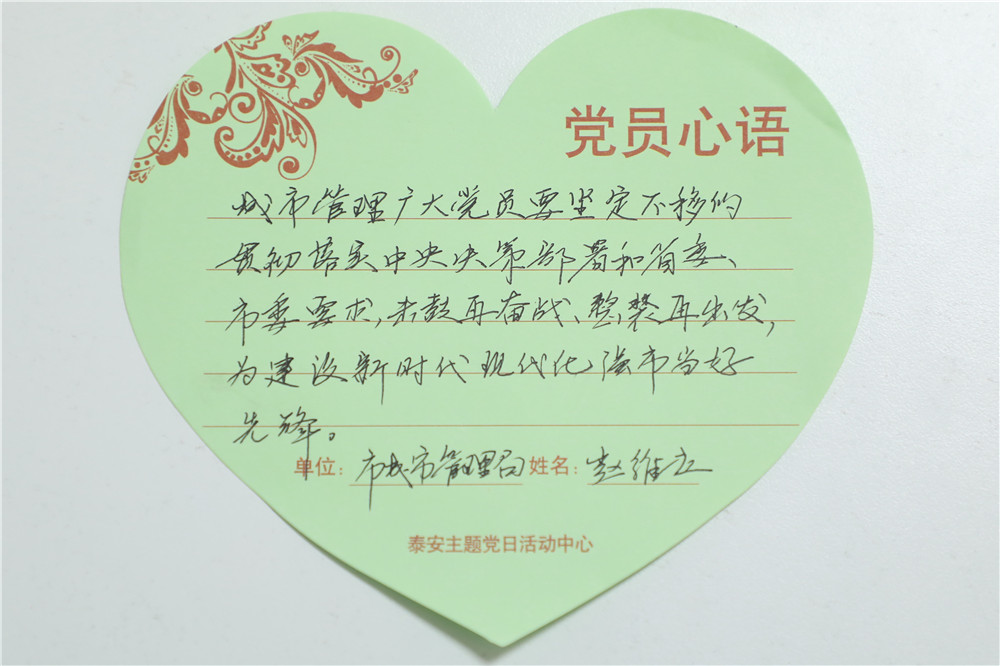 党员心语
城市管理广大党员要坚定不移的
贯彻落实中央决策部署和省委、
市委要求,击鼓再奋战、整装再出发,
为建设新时代现代化强市当好
先锋。
单位:市城市管理局 姓名:赵维立
泰安主题党日活动中心